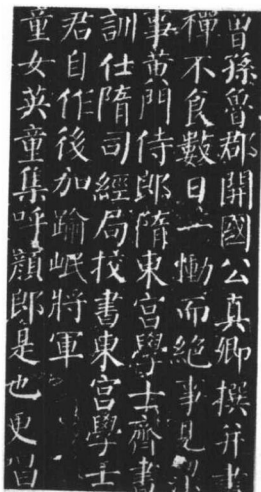 曾孫魯郡開國公真卿撰并書
禪不食數日一慟而絕事見梁
事黃門侍郎隋東宮學士齊書
訓仕隋司經局挍書東宮學士
君自作後加踰岷將軍
童女英童集呼顏郎是也更唱